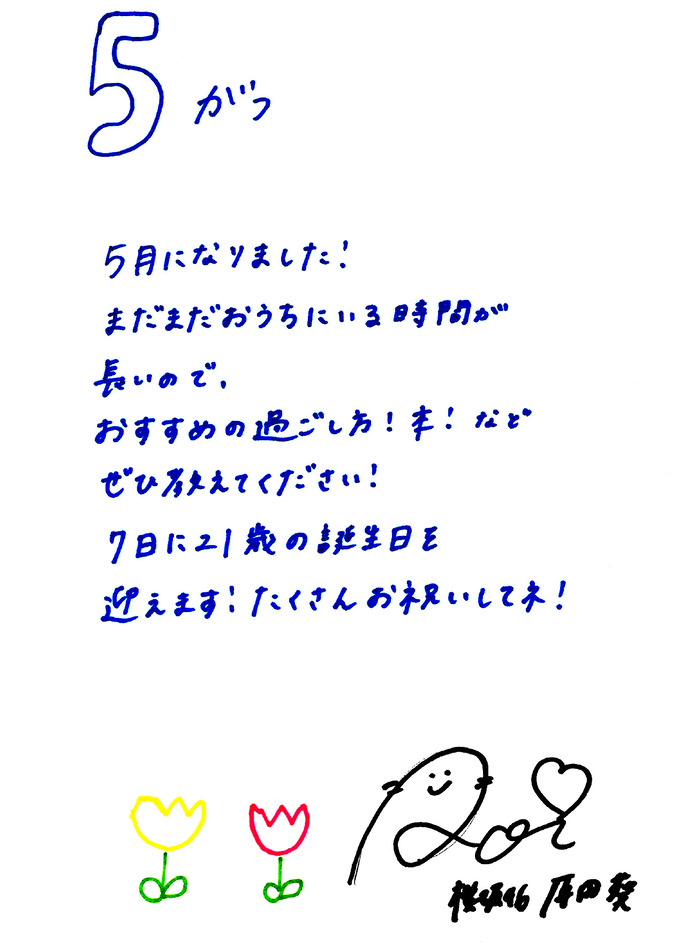 5がつ
5月になりました!
まだまだおうちにいる時間が
長いので、
おすすめの過ごし方!本!など
ぜひ教えてください!
7日に21歳の誕生日を
迎えます!たくさんお祝いしてネ!
欅坂46 原田葵